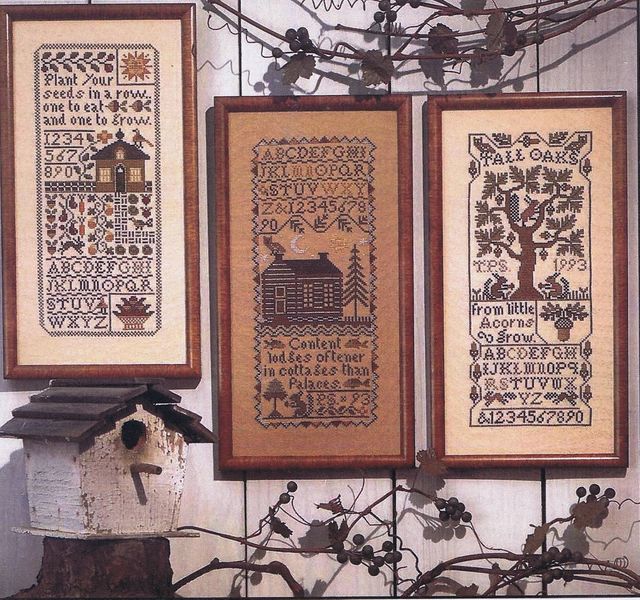 Plant Your
seeds in a row..
one to eat
and one to grow.
1234
567
890
ABCDEFGHI
JKLMNOPQR
STUV
WXYZ
ABCDEFGHI
JKLMNOPQR
STUVWXY
Z&12345678
90
Content
lodges oftener
in cottages than
Palaces.
P.S. 93
TALL OAKS
T.P.S. 1993
from little
Acorns
grow.
ABCDEFGH
IJKLMNOPQ
RSTUVWX
YZ
&1234567890